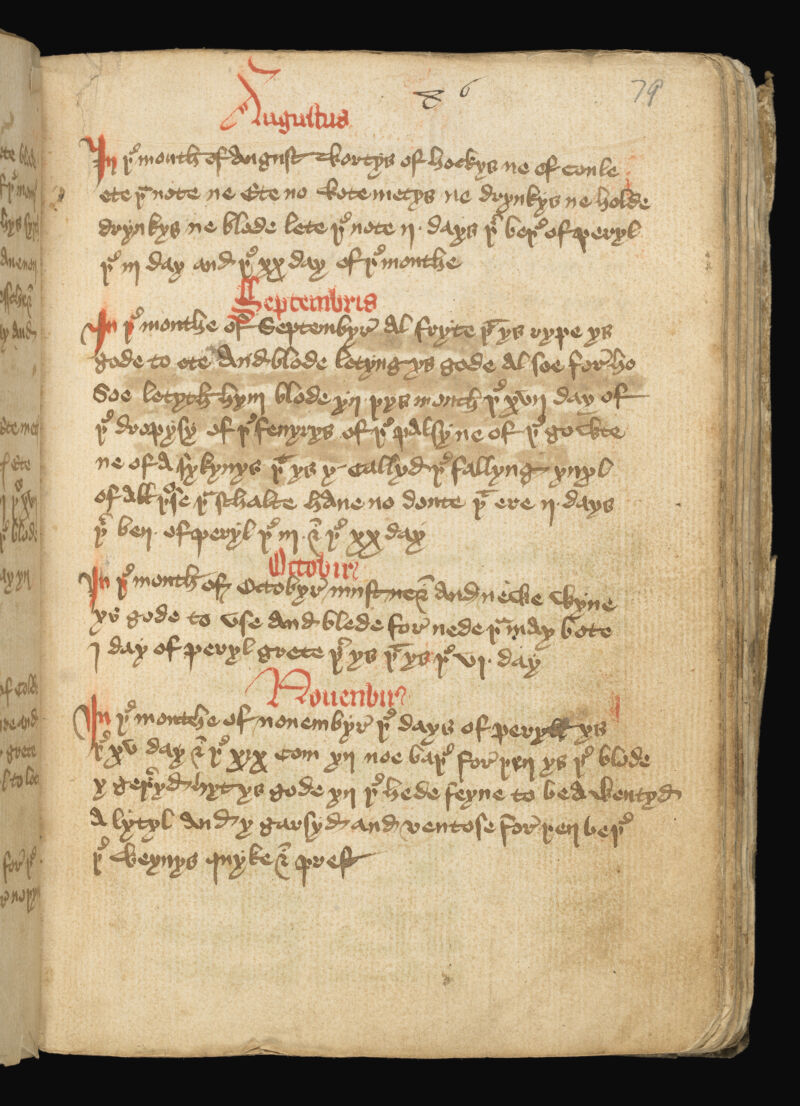 86
79
Augustus
In þe month of August Wortys of hockys ne of coule
ete þu note ne Ete no Hote metys ne drynkys ne holde
drynkys ne blode lete þu note ij days þer beþ of peryl
þe iij day and þe xx day of þe monthe
Septembris
In þe monthe of Septembyr Al fryte þat ys rype ys
gode to ete And blode letyng ys gode Al soe for ho
Soe letyth hym blode yn þys month þe xvij day of
þe dropysy of þe fenyrys of þe palsy ne of þe gowte
ne of A sykynys þat ys y callyd þe fallyng yvyl
of All þese þu schalte haue no doute þer ere ij days
þer ben of peryl þe iij & þe xx day
Octobir
In þe month of Octobyr must ner & And newe Wyne
ys gode to vse And blede for nede þu may bote
j day of peryl grete þer ys þat ys þe vj day
Nouenbir
In þe monthe of nouembyr þe days of peryll ys
þe xv day & þe xix com yn noe baþe for þen ys þe blode
y geþryd hyt ys gode yn þe hede seyne to be A wentyd
A lytyl And y garsyd and ventose for þen beþ
þe weynys quyke & prest